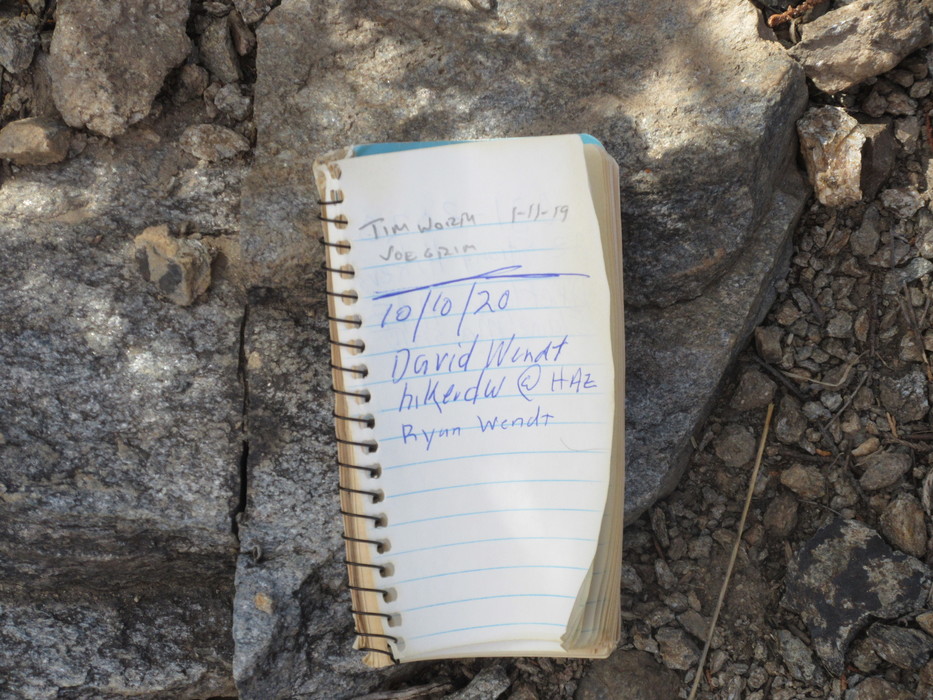 TIM WORM 1-11-19
JOE GRIM
10/10/20
David Wendt
hikerdw @ HAZ
Ryan Wendt